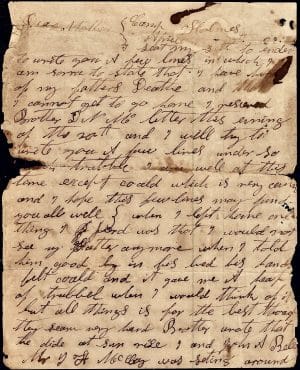 Dear Mother { Camp Holmes
I seat my self to
to write you a few lines in which I
am sorry to state that I have
of my fathers Deathe and
I cannot get to go home I receved
Brother letter this evning
of the 20th and I will try to
write you a few lines under so
much trubble I am well at this
time except coald which is very
and I hope thes few lines may find
you all well } when I left home one
thing I was that I would not
see my father any more when I told
him good by in his bed his hands
felt coald and it gave me a heap
of trubbel when I would think of it
but all things is for the best though
they seam very hard Brother wrote that
he dide at sun rise and
Mr McCoy was seting around